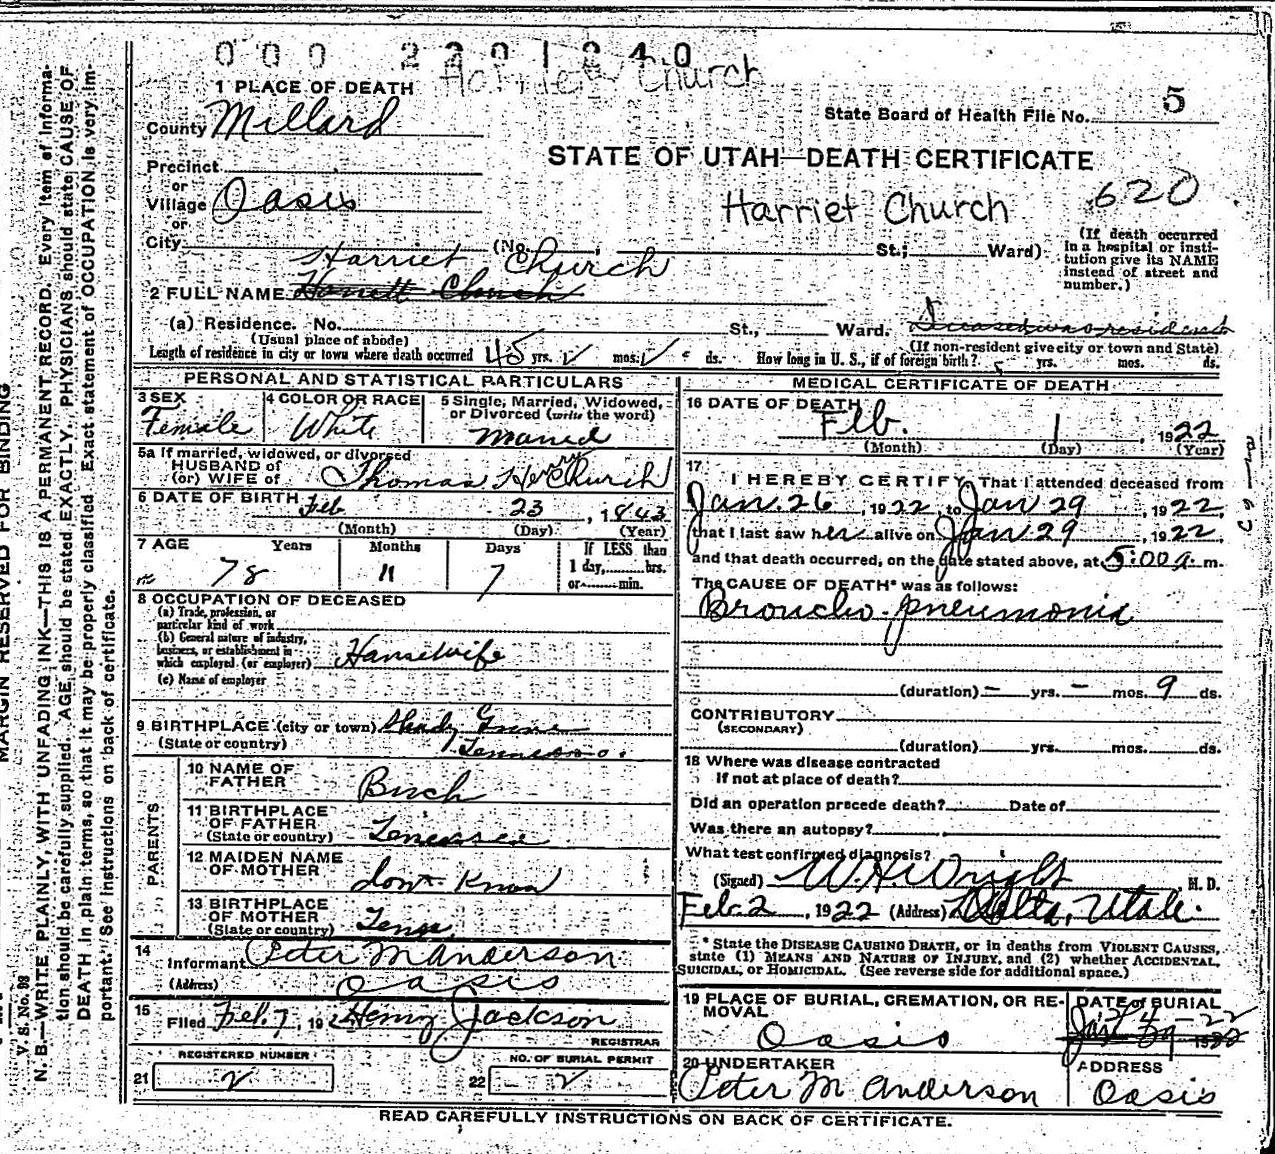 000 2201240
Harriet Church
1 PLACE OF DEATH
County Millard
State Board of Health File No. 5
STATE OF UTAH—DEATH CERTIFICATE
Precinct
or
Village Oasis
or
City (No. St.; Ward)
Harriet Church 620
(If death occurred in a hospital or institution give its NAME instead of street and number.)
Harriet Church
2 FULL NAME Harriett Church
(a) Residence. No. St., Ward. Deceased was resident
(Usual place of abode) (If non-resident give city or town and State)
Length of residence in city or town where death occurred 45 yrs. mos. ds. How long in U. S., if of foreign birth? yrs. mos. ds.
PERSONAL AND STATISTICAL PARTICULARS
3 SEX Female
4 COLOR OR RACE White
5 Single, Married, Widowed, or Divorced (write the word) Maried
5a If married, widowed, or divorced
HUSBAND of
(or) WIFE of Thomas Henry Church
6 DATE OF BIRTH Feb 23, 1843
(Month) (Day) (Year)
7 AGE Years Months Days If LESS than
78 11 7 1 day, hrs.
or min.
8 OCCUPATION OF DECEASED
(a) Trade, profession, or particular kind of work
(b) General nature of industry, business, or establishment in which employed (or employer) Housewife
(c) Name of employer
9 BIRTHPLACE (city or town) Shady Grove
(State or country) Tennessee.
PARENTS
10 NAME OF FATHER Burch
11 BIRTHPLACE OF FATHER
(State or country) Tenessee
12 MAIDEN NAME OF MOTHER dont Know
13 BIRTHPLACE OF MOTHER
(State or country) Tenn
14
Informant Peter M Anderson
(Address) Oasis
15
Filed Feb. 7, 192 Henry Jackson
REGISTRAR
REGISTERED NUMBER NO. OF BURIAL PERMIT
21 2 22 2
MEDICAL CERTIFICATE OF DEATH
16 DATE OF DEATH
Feb. 1, 1922
(Month) (Day) (Year)
17
I HEREBY CERTIFY, That I attended deceased from
Jan. 26, 1922, to Jan 29, 1922,
that I last saw her alive on Jan 29, 1922,
and that death occurred, on the date stated above, at 5:00 a. m.
The CAUSE OF DEATH* was as follows:
Broncho-pneumonia
(duration) – yrs. – mos. 9 ds.
CONTRIBUTORY
(SECONDARY)
(duration) yrs. mos. ds.
18 Where was disease contracted
If not at place of death?
Did an operation precede death? Date of
Was there an autopsy?
What test confirmed diagnosis?
(Signed) W. H. Wright M. D.
Feb. 2, 1922 (Address) Delta, Utah.
* State the DISEASE CAUSING DEATH, or in deaths from VIOLENT CAUSES, state (1) MEANS AND NATURE OF INJURY, and (2) whether ACCIDENTAL, SUICIDAL, or HOMICIDAL. (See reverse side for additional space.)
19 PLACE OF BURIAL, CREMATION, OR REMOVAL DATE of BURIAL
Oasis
20 UNDERTAKER ADDRESS
Peter M Anderson Oasis
READ CAREFULLY INSTRUCTIONS ON BACK OF CERTIFICATE.
MARGIN RESERVED FOR BINDING
V. S. No. 98
N. B.—WRITE PLAINLY, WITH UNFADING INK—THIS IS A PERMANENT RECORD. Every item of information should be carefully supplied. AGE should be stated EXACTLY. PHYSICIANS should state CAUSE OF DEATH in plain terms, so that it may be properly classified. Exact statement of OCCUPATION is very important. See instructions on back of certificate.